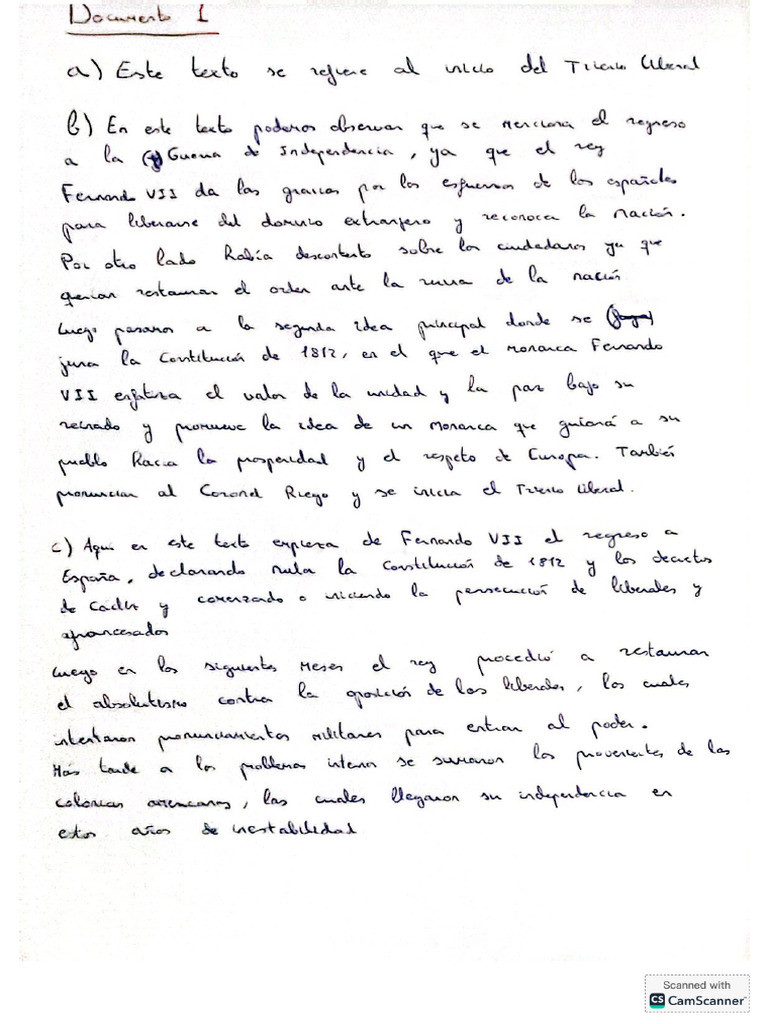 Documento 1
a) Este texto se refiere al inicio del Trienio Liberal
b) En este texto podemos observar que se menciona el regreso
a la Guerra de Independencia, ya que el rey
Fernando VII da las gracias por los esfuerzos de los españoles
para liberarse del dominio extranjero y reconoce la nación.
Por otro lado había descontento sobre los ciudadanos ya que
querían restaurar el orden ante la ruina de la nación
Luego pasamos a la segunda idea principal donde se
jura la Constitución de 1812, en el que el monarca Fernando
VII enfatiza el valor de la unidad y la paz bajo su
reinado y promueve la idea de un monarca que guiará a su
pueblo hacia la prosperidad y el respeto de Europa. También
pronuncian al Coronel Riego y se inicia el Trienio Liberal.
c) Aquí en este texto empieza de Fernando VII el regreso a
España, declarando nula la Constitución de 1812 y los decretos
de Cádiz y comenzado o iniciando la persecución de liberales y
afrancesados
Luego en los siguientes meses el rey procedió a restaurar
el absolutismo contra la oposición de los liberales, los cuales
intentaron pronunciamientos militares para entrar al poder.
Más tarde a los problemas internos se sumaron los provenientes de las
colonias americanas, las cuales llegaron su independencia en
estos años de inestabilidad
Scanned with
CS CamScanner